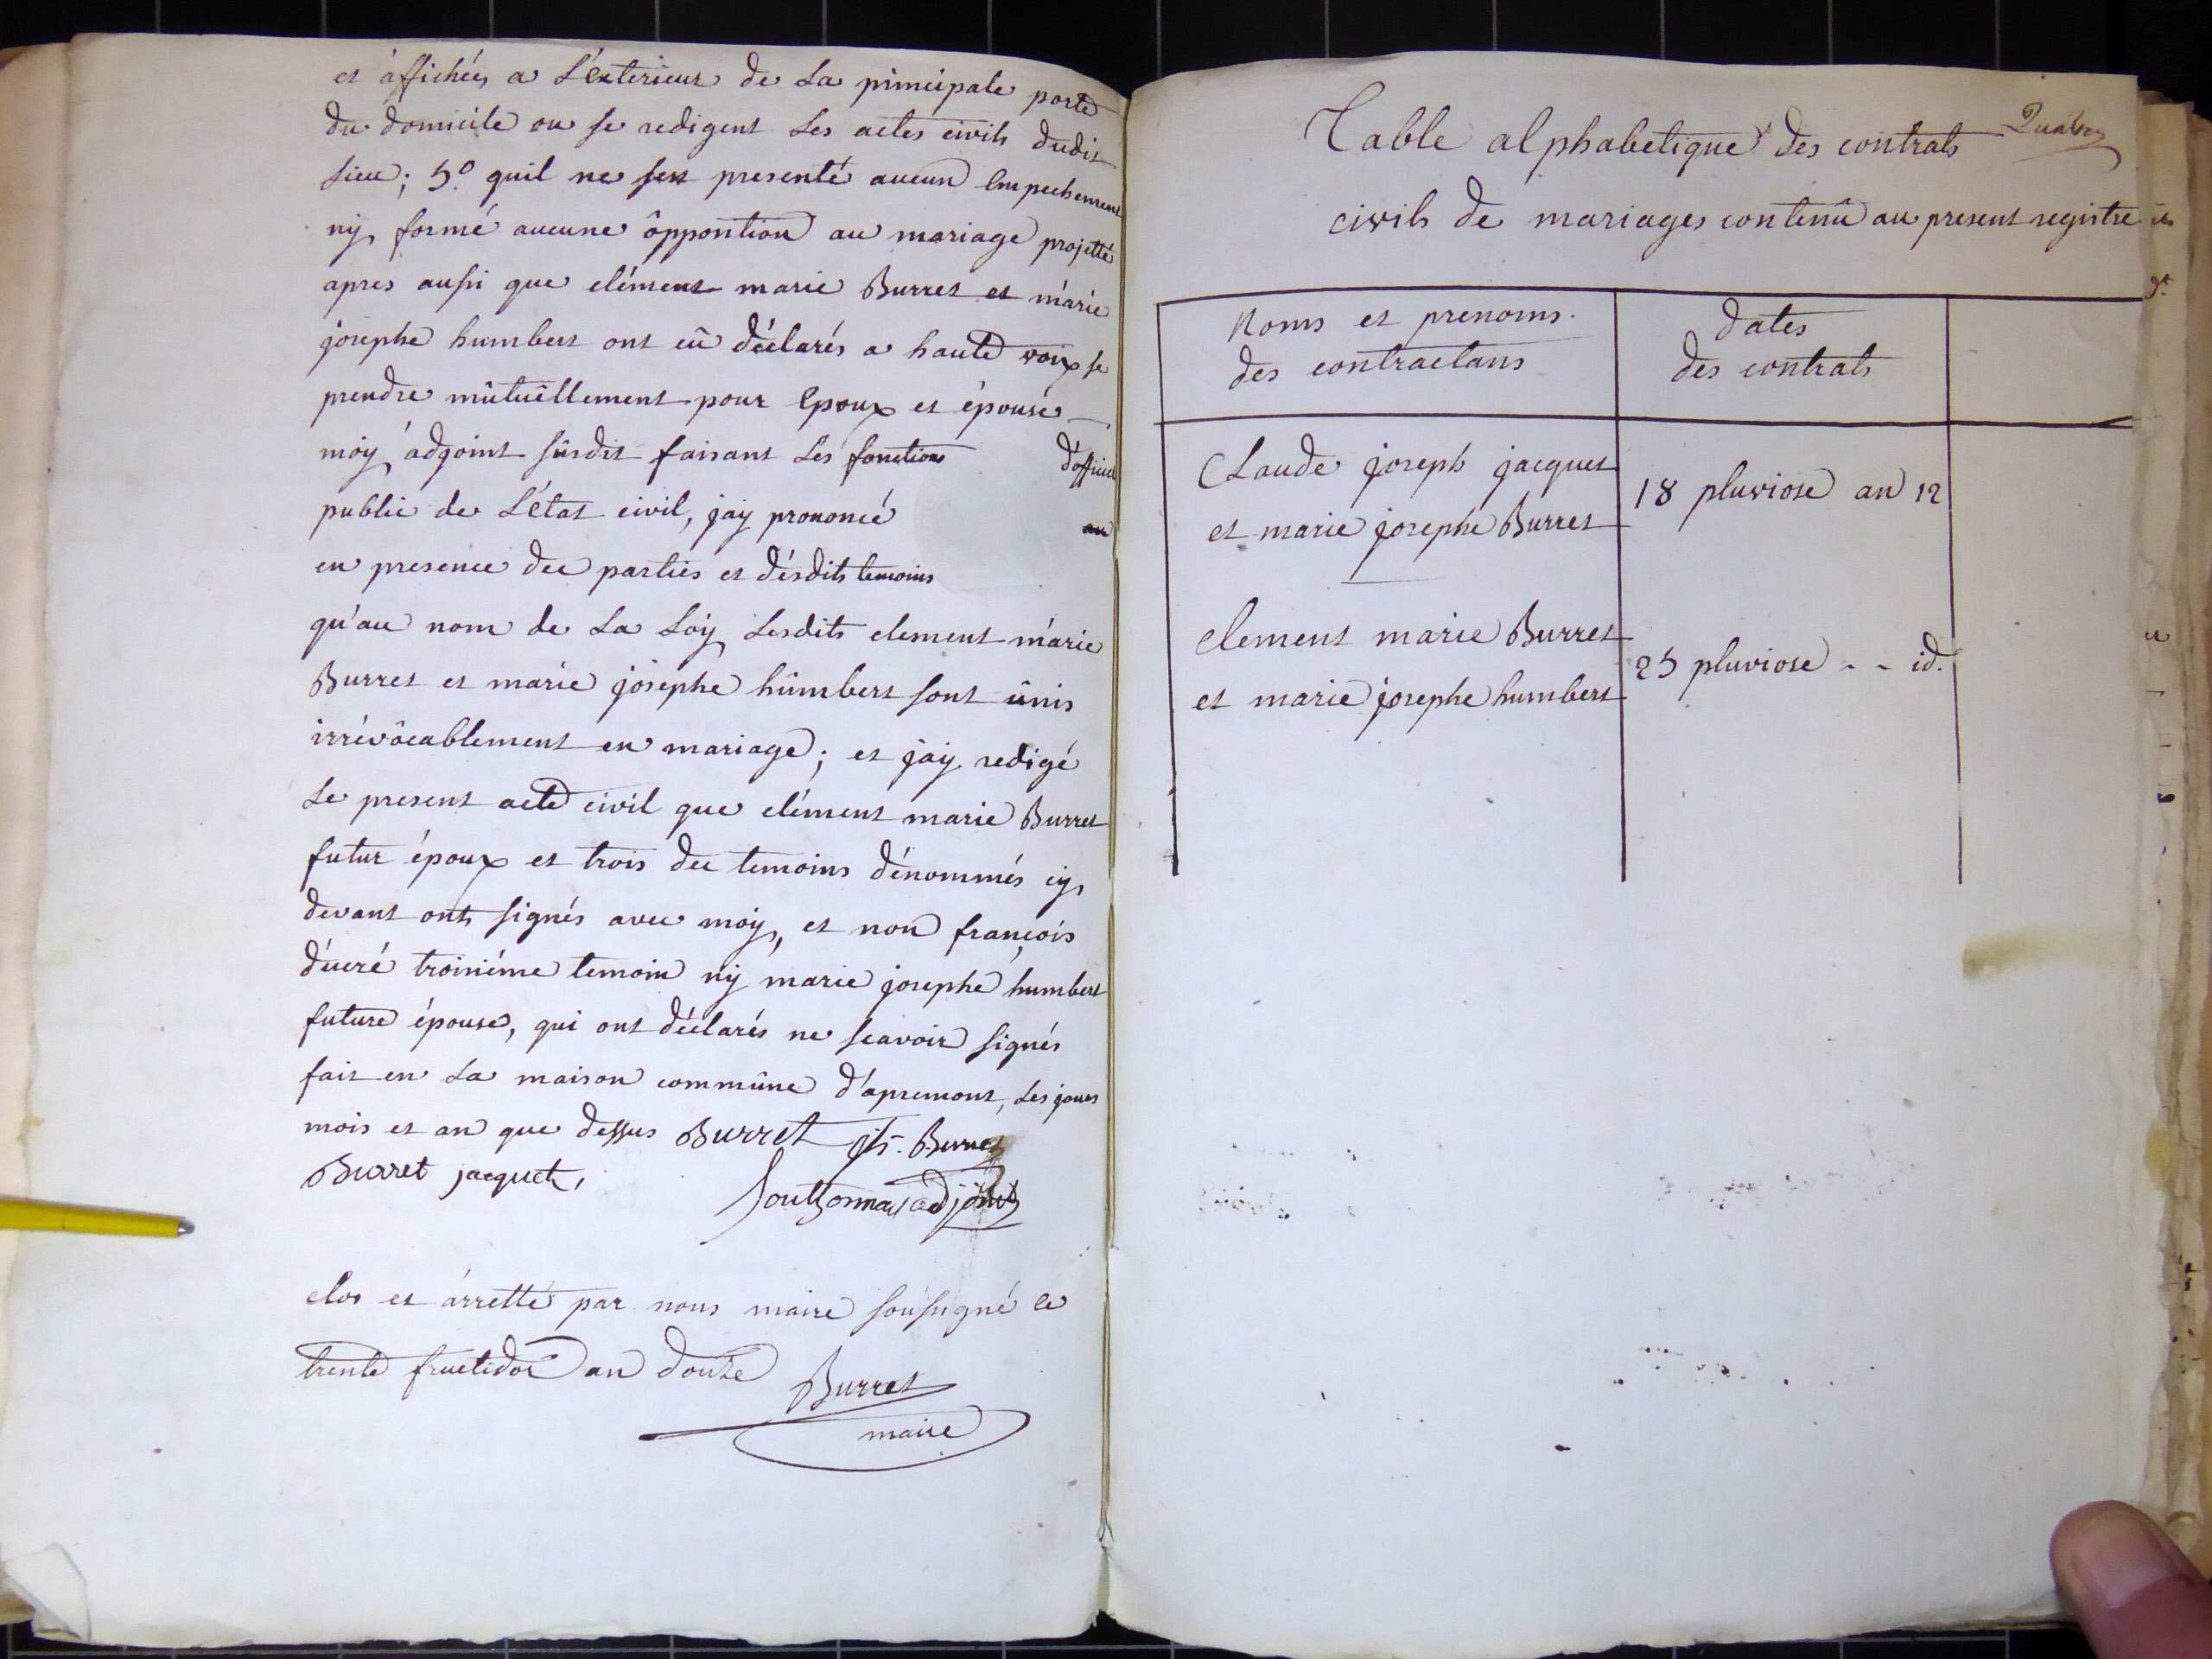 et àffichées a L'éxterieur de La pincipale porte
du domicile ou se redigent Les actes civils dudit
Lieu; 5.º quil ne sest presenté aucun Empechement
ny formé aucune ôpposition au mariage projetté
apres aussi que clément marie Burret et marie
josephe humbert ont eû déclarés a haute voix se
prendre mûtuêllement pour Epoux et épouse
moy adjoint sûsdit faisant Les fonctions d'officier
public de L'état civil, jay prononcé
en presence des parties et désdits temoins
qu'au nom de La Loÿ Lesdits clement marie
Burret et marie josephe hûmbert sont ûnis
irrévôcablement en mariage; et jaÿ redigé
Le present acte civil que clément marie Burret
futur époux et trois des temoins dénommés cy
devant onts signés avec moÿ, et non françois
ducré troisiéme temoin nÿ marie josephe humbert
future épouse, qui ont déclarés ne scavoir signés
fait en La maison commûne d'apremont, Les jours
mois et an que dessus Burret Burret
Burret jacquet,
adjoint
clos et àrretté par nous maire soussigné le
trente fructidor an douze Burret
maire
Table alphabetique des contrats
civils de mariages contenû au present registre
Noms et prenoms.
des contractans
dates
des contrats
Claude joseph jacquet
et marie josephe Burret
18 pluviose an 12
clement marie Burret
et marie josephe humbert
25 pluviose - - id.